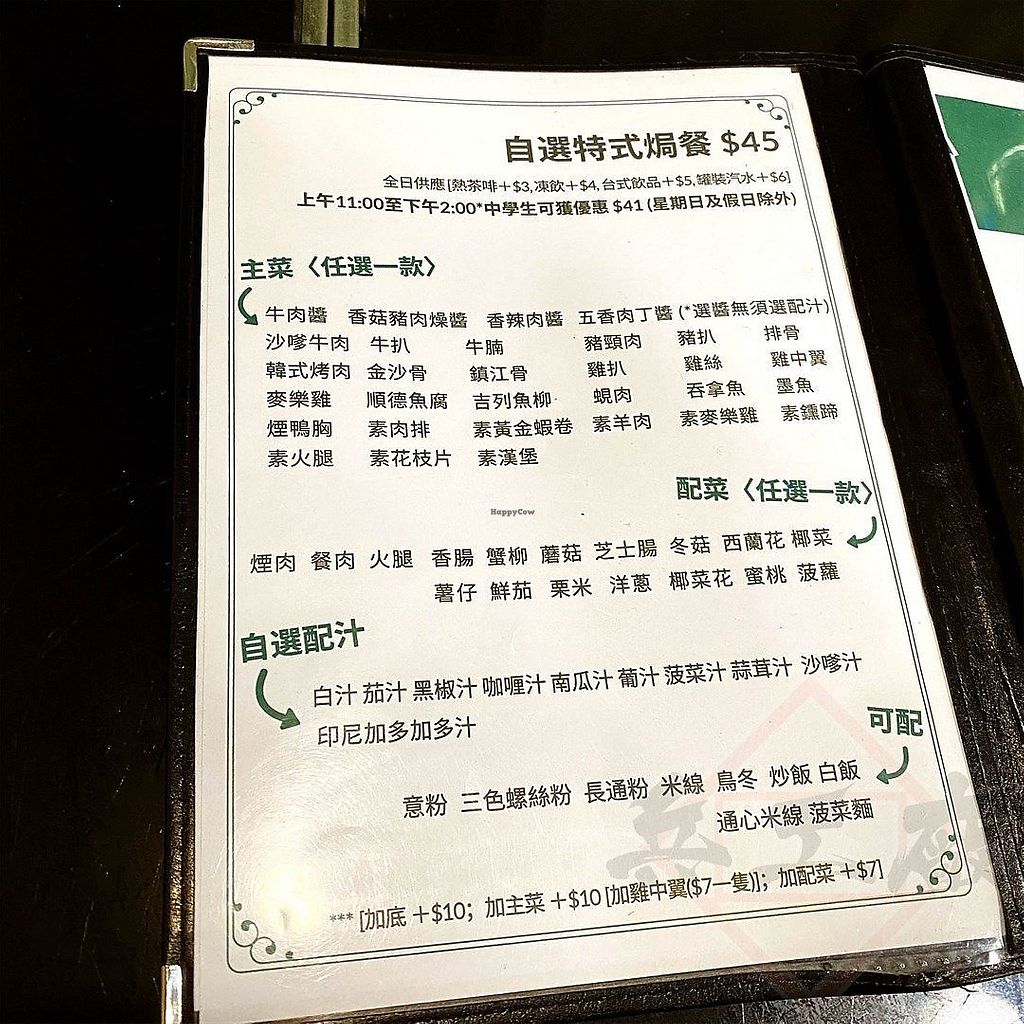 自選特式焗餐 $45
全日供應 [熱茶啡+$3, 凍飲+$4, 台式飲品+$5, 罐裝汽水+$6]
上午11:00至下午2:00*中學生可獲優惠 $41 (星期日及假日除外)
主菜〈任選一款〉
牛肉醬 香菇豬肉燥醬 香辣肉醬 五香肉丁醬 (*選醬無須選配汁)
沙嗲牛肉 牛扒 牛腩 豬頸肉 豬扒 排骨
韓式烤肉 金沙骨 鎮江骨 雞扒 雞絲 雞中翼
麥樂雞 順德魚腐 吉列魚柳 蜆肉 吞拿魚 墨魚
煙鴨胸 素肉排 素黃金蝦卷 素羊肉 素麥樂雞 素鑂蹄
素火腿 素花枝片 素漢堡
配菜〈任選一款〉
HappyCow
煙肉 餐肉 火腿 香腸 蟹柳 蘑菇 芝士腸 冬菇 西蘭花 椰菜
薯仔 鮮茄 栗米 洋蔥 椰菜花 蜜桃 菠蘿
自選配汁
白汁 茄汁 黑椒汁 咖喱汁 南瓜汁 葡汁 菠菜汁 蒜茸汁 沙嗲汁
印尼加多加多汁
可配
意粉 三色螺絲粉 長通粉 米線 烏冬 炒飯 白飯
通心米線 菠菜麵
*** [加底 +$10; 加主菜 +$10 [加雞中翼($7一隻)]; 加配菜 +$7]